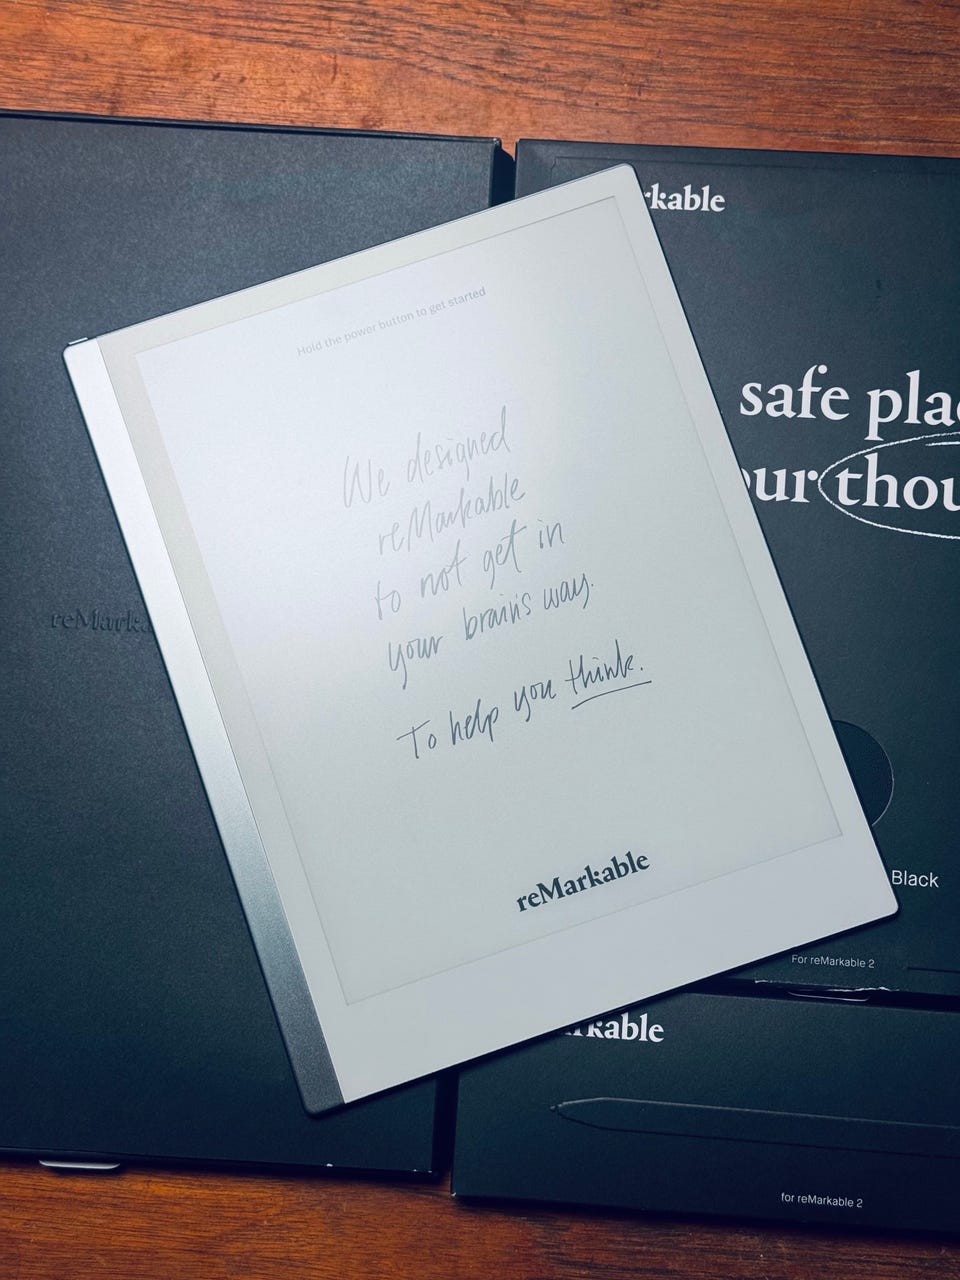 rkable
safe plac
our thou
Hold the power button to get started
We designed
reMarkable
to not get in
your brain's way.
To help you think.
reMarkable
reMarka
Black
For reMarkable 2
arkable
for reMarkable 2